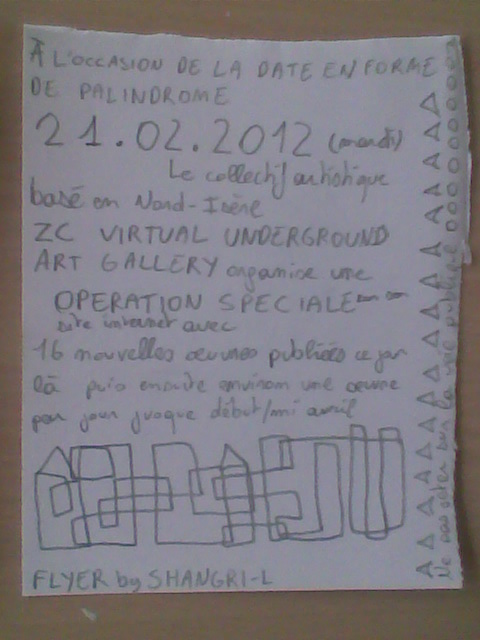 À L'OCCASION DE LA DATE EN FORME
DE PALINDROME
21.02.2012 (mardi)
Le collectif artistique
basé en Nord-Isère
ZC VIRTUAL UNDERGROUND
ART GALLERY organise une
OPERATION SPECIALE sur son
site internet avec
16 nouvelles œuvres publiées ce jour
là puis ensuite environ une œuvre
par jour jusque début/mi avril
FLYER by SHANGRI-L
Ne pas jeter sur la voie publique